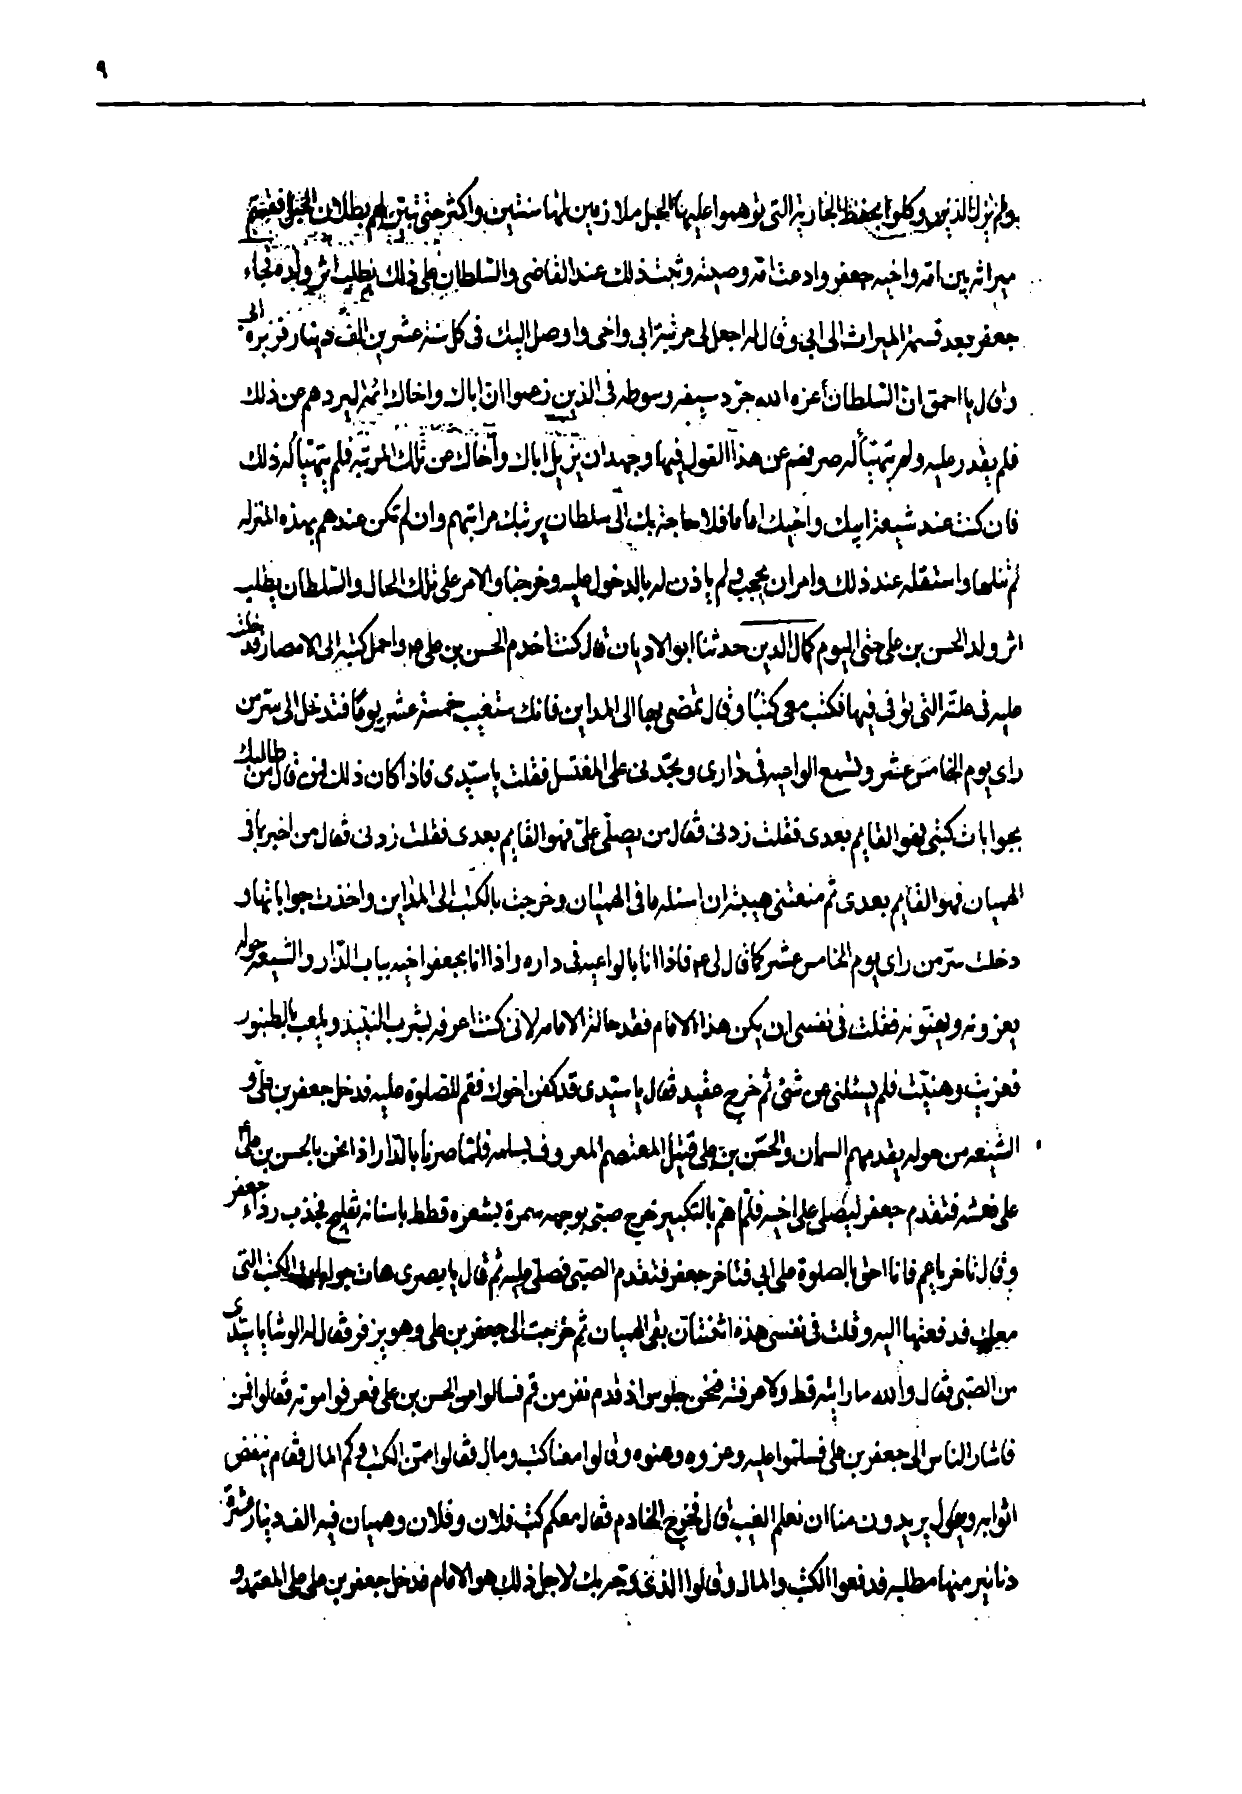 ٩
ولم يزل الذين وكلوا بحفظ الجارية التي توهموا عليها الحبل ملازمين لها سنتين واكثر حتى تبين لهم بطلان الحبل فقسم
ميراثه بين امه واخيه جعفر وادعت امه وصيته وثبت ذلك عند القاضي والسلطان على ذلك يطلب اثر ولده فجاء
جعفر بعد قسمة الميراث الى ابي وقال له اجعل لي مرتبة ابي واخي واوصل اليك في كل سنة عشرين الف دينار فزبره ابي
وقال يا احمق ان السلطان أعزه الله جرد سيفه وسوطه في الذين زعموا ان اباك واخاك ائمة ليردهم عن ذلك
فلم يقدر عليه ولم يتهيأ له صرفهم عن هذا القول فيها وجهد ان يزيل اباك وأخاك عن تلك المرتبة فلم يتهيأ له ذلك
فان كنت عند شيعة ابيك واخيك اماما فلا حاجة بك الى سلطان يرتبك مراتبهم وان لم تكن عندهم بهذه المنزله
لم تنلها واستقله عند ذلك وامر ان يحجب ولم ياذن له بالدخول عليه وخرجنا والامر على تلك الحال والسلطان يطلب
اثر ولد الحسن بن علي حتى اليوم كمال الدين حدثنا ابو الاديان قال كنت اخدم الحسن بن علي ع واحمل كتبه الى الامصار فدخلت
عليه في علته التي توفى فيها فكتب معي كتبًا وقال تمضي بها الى المداين فانك ستغيب خمسة عشر يومًا فتدخل الى سر من
راى يوم الخامس عشر وتسمع الواعيه في داري وتجدني على المغتسل فقلت يا سيدي فاذا كان ذلك فمن قال من طالبك
بجوابات كتبي فهو القايم بعدي فقلت زدني فقال من يصلي علي فهو القايم بعدي فقلت زدني فقال من اخبر بما في
الهميان فهو القايم بعدي ثم منعتني هيبته ان اسئله ما في الهميان وخرجت بالكتب الى المداين واخذت جواباتها و
دخلت سر من راى يوم الخامس عشر كما قال لي ع فاذا انا بالواعيه في داره واذا انا بجعفر اخيه بباب الدار والشيعة حوله
يعزونه ويهنونه فقلت في نفسي ان يكن هذا الامام فقد حالت الامامه لاني كنت اعرفه بشرب النبيذ ويلعب بالطنبور
فعزيت وهنيت فلم يسئلني عن شئ ثم خرج عقيد فقال يا سيدي قد كفن اخوك فقم للصلوة عليه فدخل جعفر بن علي و
الشيعه من حوله يقدمهم السمان والحسن بن علي قتيل المعتصم المعروف بسلمه فلما صرنا بالدار اذا نحن بالحسن بن علي
على نعشه فتقدم جعفر ليصلي على اخيه فلما هم بالتكبير خرج صبي بوجهه سمرة بشعره قطط باسنانه تفليج فجذب رداء جعفر
وقال تاخر يا عم فانا احق بالصلوة على ابي فتاخر جعفر فتقدم الصبي فصلى عليه ثم قال يا بصري هات جوابات الكتب التي
معك فدفعتها اليه وقلت في نفسي هذه اثنتان بقى الهميان ثم خرجت الى جعفر بن علي وهو يزفر فقال له الوشا يا سيدي
من الصبي فقال والله ما رايته قط ولا عرفته فنحن جلوس اذ قدم نفر من قم فسالوا عن الحسن بن علي فعرفوا موته فقالوا فمن
فاشار الناس الى جعفر بن علي فسلموا عليه وعزوه وهنوه وقالوا معنا كتب ومال فقالوا ممن الكتب وكم المال فقام ينفض
اثوابه ويقول يريدون منا ان نعلم الغيب قال فخرج الخادم فقال معكم كتب فلان وفلان وهميان فيه الف دينار عشرة
دنانير منها مطلية فدفعوا الكتب والمال وقالوا الذي وجه بك لاجل ذلك هو الامام فدخل جعفر بن علي على المعتمد و